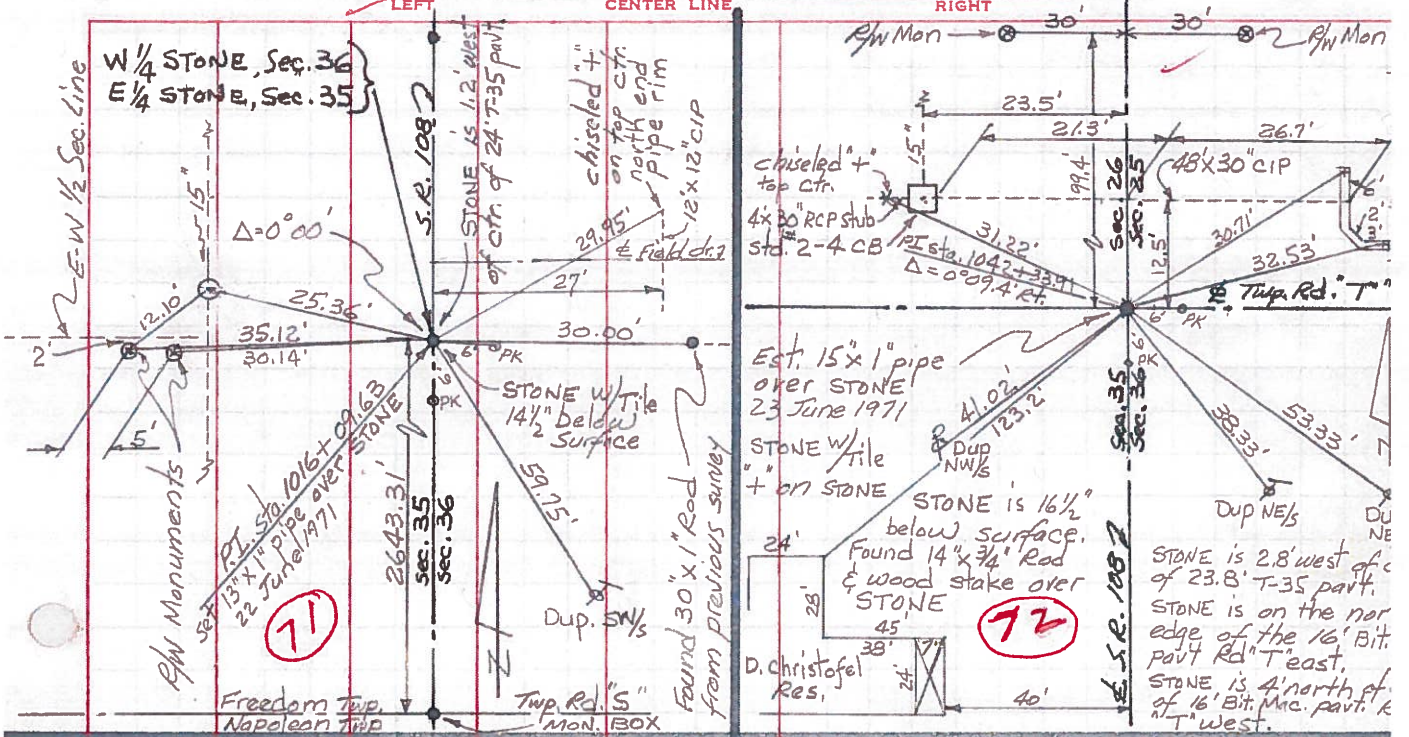 LEFT
CENTER LINE
RIGHT
W 1/4 STONE, Sec. 36
E 1/4 STONE, Sec. 35
E-W 1/2 Sec. Line
15"
Δ=0°00'
S.R. 108
STONE is 1.2' west
of ctr. of 24' T-35 pav't
chiseled "+"
on top ctr.
north end
pipe rim
12'x12" CIP
29.95'
Field dr.
27'
12.10'
25.36'
35.12'
30.14'
2'
30.00'
6'
PK
6
PK
STONE W/Tile
14 1/2" below
Surface
5'
R/W Monuments
P.I. Sta. 1016+09.63
Set 13"x1" pipe over STONE
22 June 1971
2643.31'
Sec. 35
Sec. 36
59.75'
Dup. SW/S
Found 30"x1" Rod
from previous survey
71
N
Freedom Twp.
Napoleon Twp
Twp. Rd. "S"
MON. BOX
30'
30'
R/W Mon
R/W Mon
23.5'
21.3'
26.7'
15"
99.4'
Sec. 26
Sec. 25
48'x30" CIP
chiseled "+"
top ctr.
4'x30" RCP stub
std #2-4 CB
31.22'
PI sta. 1042+33.91
Δ=0°09.4' Rt.
12.5'
30.71'
32.53'
6'
2'
3'
Twp. Rd. "T"
6'
PK
6
PK
Est. 15"x1" pipe
over STONE
23 June 1971
STONE W/Tile
"+" on STONE
41.02'
123.2'
Dup
NW/S
Sec. 35
Sec. 36
38.33'
53.33'
Dup NE/S
Du
NE
STONE is 16 1/2"
below surface.
Found 14"x3/4" Rod
& wood stake over
STONE
24'
28'
45'
38'
24'
7'
D. Christofel
Res.
72
40'
S.R. 108
STONE is 2.8' west of c
of 23.8' T-35 pav't.
STONE is on the nor
edge of the 16' Bit.
pav't Rd "T" east.
STONE is 4' north of
of 16' Bit. Mac. pav't. R
"T" west.